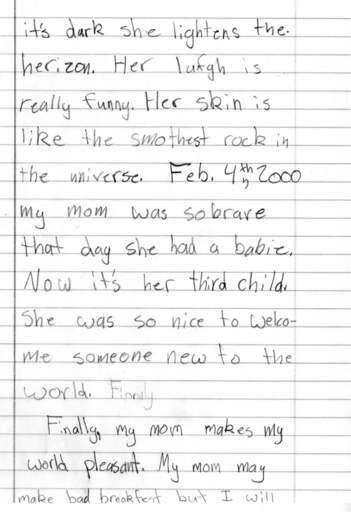 it's dark she lightens the.
herizon. Her lafgh is
really funny. Her skin is
like the smothest rock in
the universe. Feb. 4th, 2000
my mom was so brave
that day she had a babie.
Now it's her third child.
She was so nice to welco-
me someone new to the
world. Finnly
Finally, my mom makes my
world pleasant. My mom may
make bad breakfest but I will